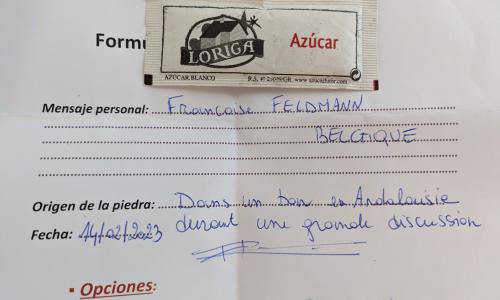 Formu
LORIGA
Azúcar
AZÚCAR BLANCO
www.azucarlour.com
Mensaje personal: Françoise FELDMANN
BELGIQUE
Origen de la piedra: Dans un bar en Andalousie
Fecha: 14/02/2023 durant une grande discussion
• Opciones: